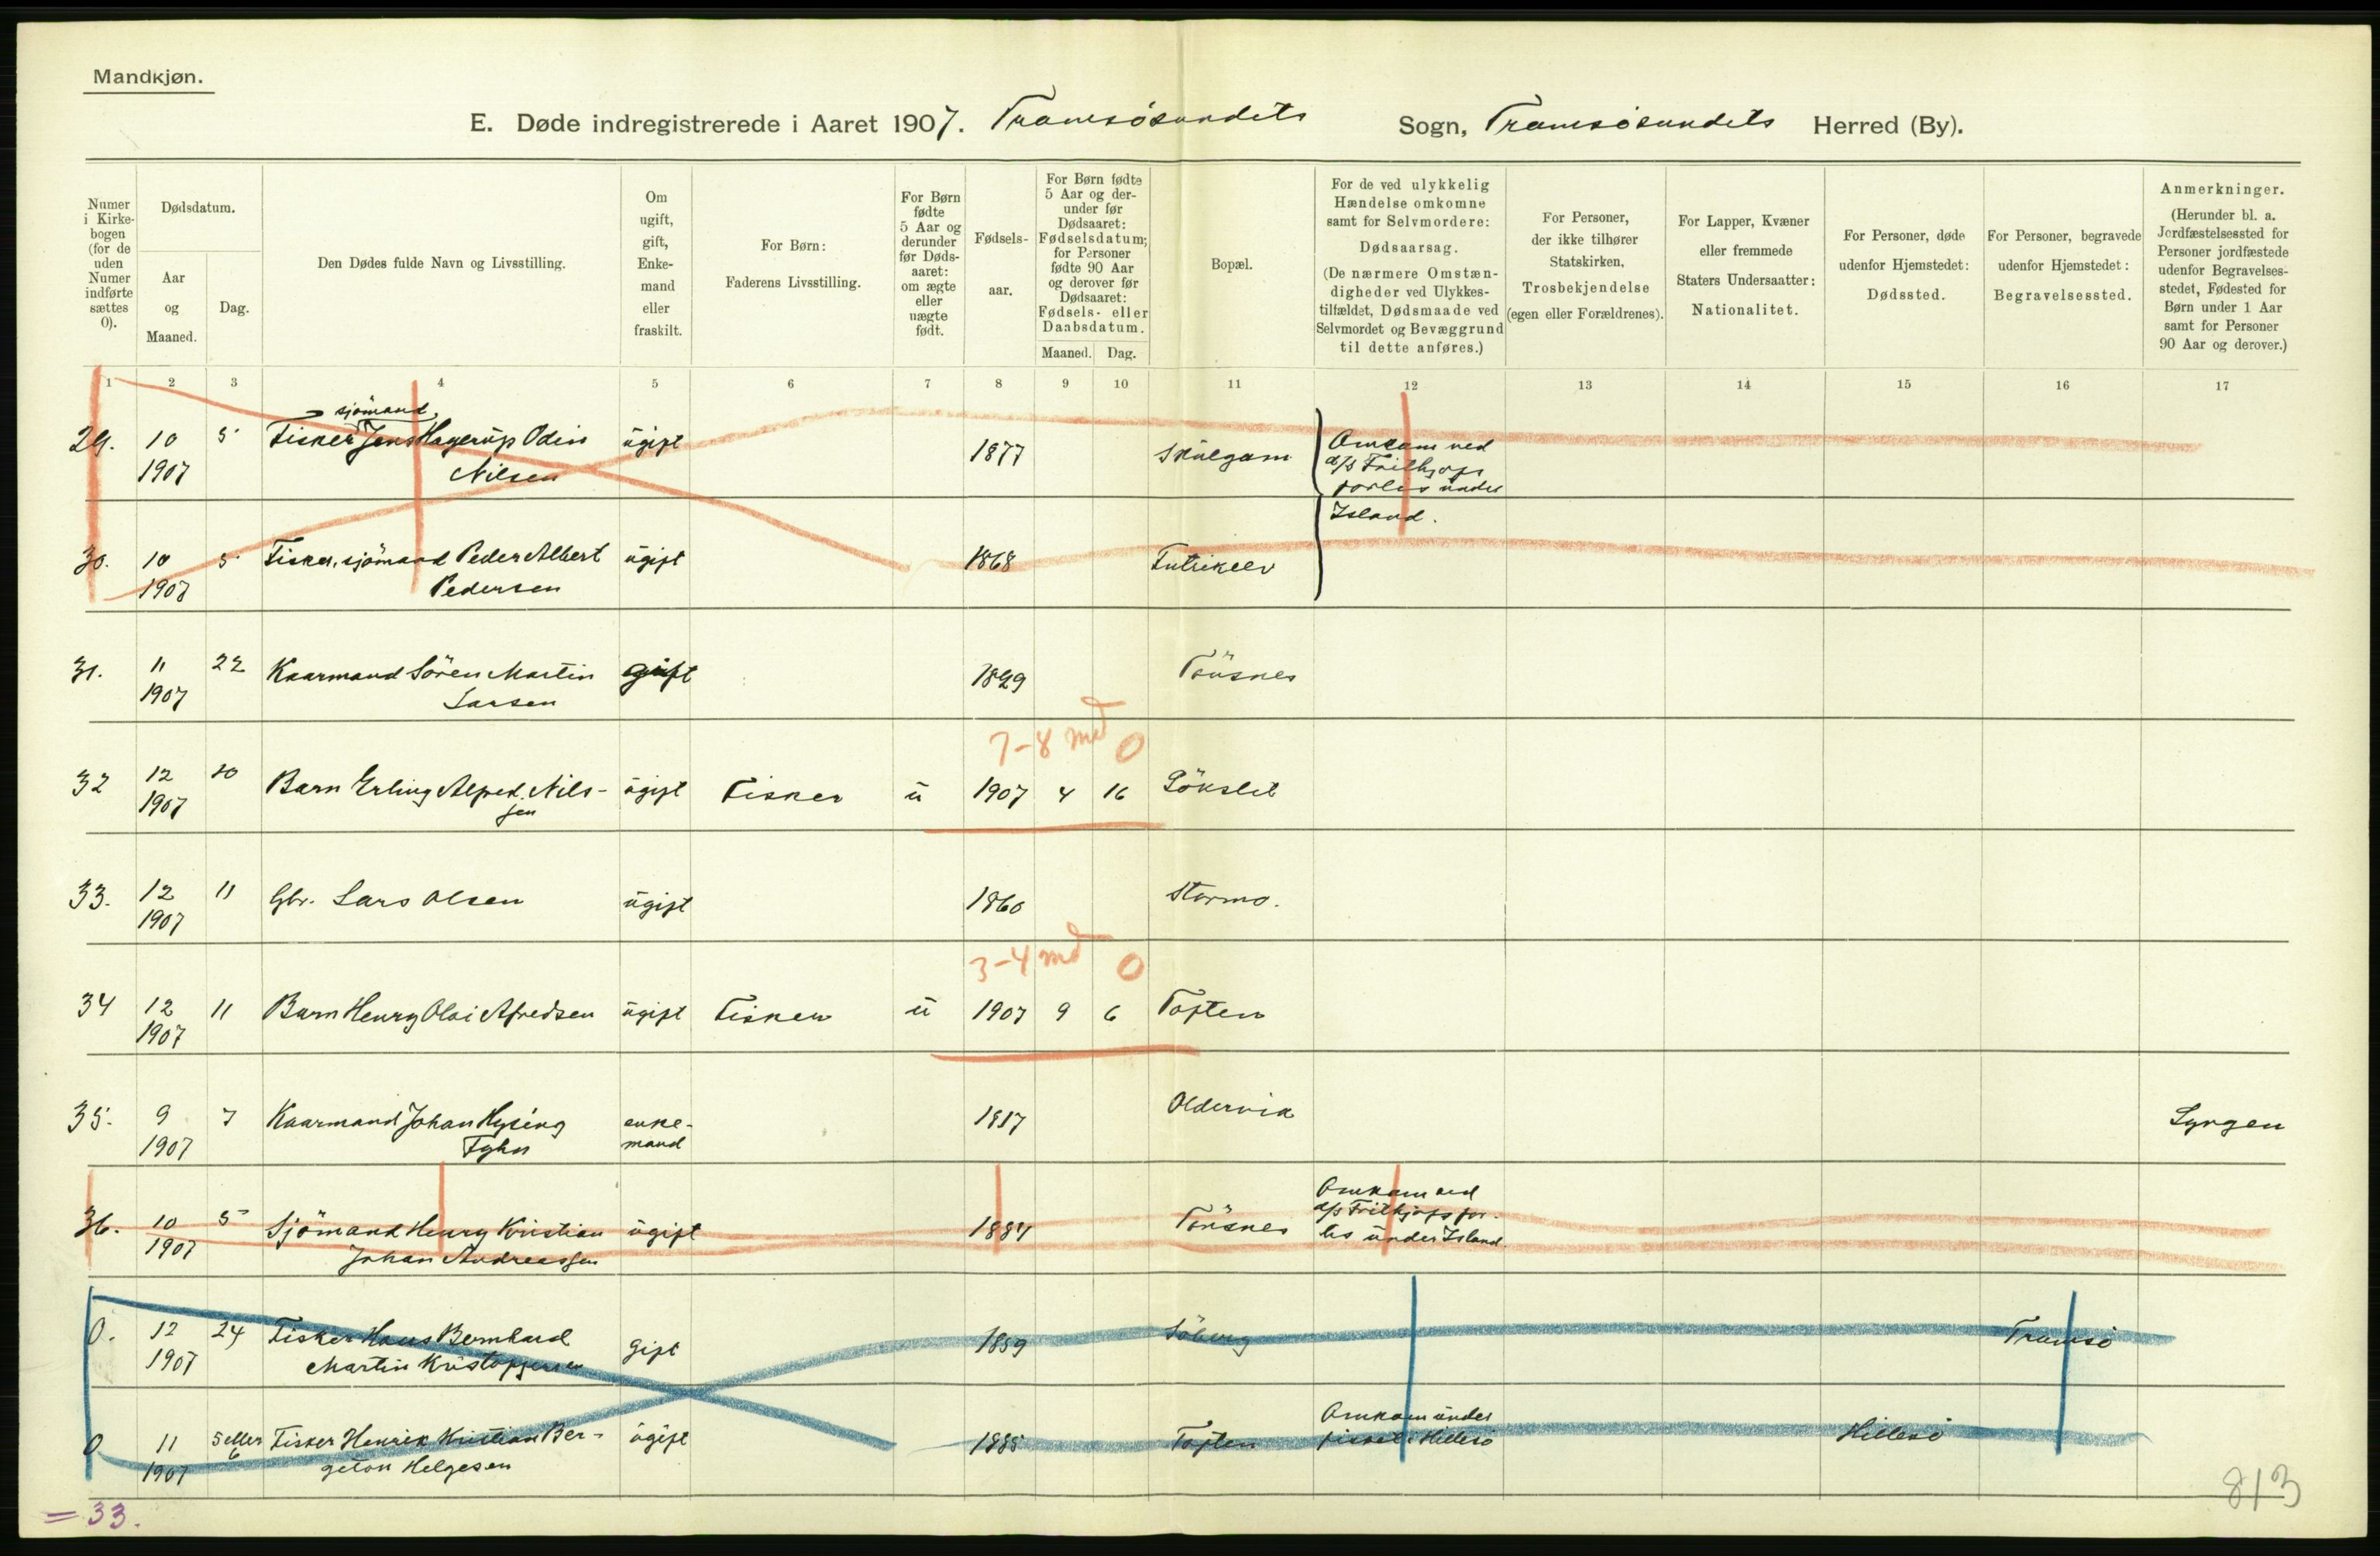 Mandkjøn.
E. Døde indregistrerede i Aaret 1907. Tromsösundets Sogn, Tromsösundets Herred (By).
Numer i Kirkebogen (for de uden Numer indførte sættes 0).
Dødsdatum.
Aar og Maaned.
Dag.
Den Dødes fulde Navn og Livsstilling.
Om ugift, gift, Enkemand eller fraskilt.
For Børn: Faderens Livsstilling.
For Børn fødte 5 Aar og derunder før Dødsaaret: om ægte eller uægte født.
Fødselsaar.
For Børn fødte 5 Aar og derunder før Dødsaaret: Fødselsdatum; for Personer fødte 90 Aar og derover før Dødsaaret: Fødsels- eller Daabsdatum.
Maaned. Dag.
Bopæl.
For de ved ulykkelig Hændelse omkomne samt for Selvmordere: Dødsaarsag. (De nærmere Omstændigheder ved Ulykkestilfældet, Dødsmaade ved Selvmordet og Bevæggrund til dette anføres.)
For Personer, der ikke tilhører Statskirken, Trosbekjendelse (egen eller Forældrenes).
For Lapper, Kvæner eller fremmede Staters Undersaatter: Nationalitet.
For Personer, døde udenfor Hjemstedet: Dødssted.
For Personer, begravede udenfor Hjemstedet: Begravelsessted.
Anmerkninger. (Herunder bl. a. Jordfæstelsessted for Personer jordfæstede udenfor Begravelsesstedet, Fødested for Børn under 1 Aar samt for Personer 90 Aar og derover.)
1 2 3 4 5 6 7 8 9 10 11 12 13 14 15 16 17
sjömand,
29. 10 5 Fisker Jens Hagerup Odin ugift 1877 Skulgam Omkom ved
1907 Nilsen d/s Frithjofs
forlis under
Island.
30. 10 5 Fisker, sjömand Peder Albert ugift 1868 Futrikelv
1907 Pedersen
31. 11 22 Kaarmand Sören Martin gift 1829 Tönsnes
1907 Larsen
7-8 md 0
32 12 10 Barn Erling Alfred Nils- ugift Fisker u 1907 4 16
1907 sen
33. 12 11 Gbr. Lars Olsen ugift 1860 Stormo.
1907
3-4 md 0
34 12 11 Barn Henry Olai Alfredsen ugift Fisker u 1907 9 6 Toften
1907
35. 9 7 Kaarmand Johan Hysing enke- 1817 Oldervik Lyngen
1907 mand
36. 10 5 Sjömand Henry Kristian ugift 1884 Tönsnes Omkom ved
1907 Johan Andreassen d/s Frithjofs for-
lis under Island.
0. 12 24 Fisker Hans Bernhard gift 1859 Söberg Tromsö
1907 Martin Kristoffersen
0 11 5 eller 6 Fisker Henrik Kristian Ber- ugift 1885 Toften Omkom under
1907 geton Helgesen fiske i Hillesö Hillesö
= 33.
813